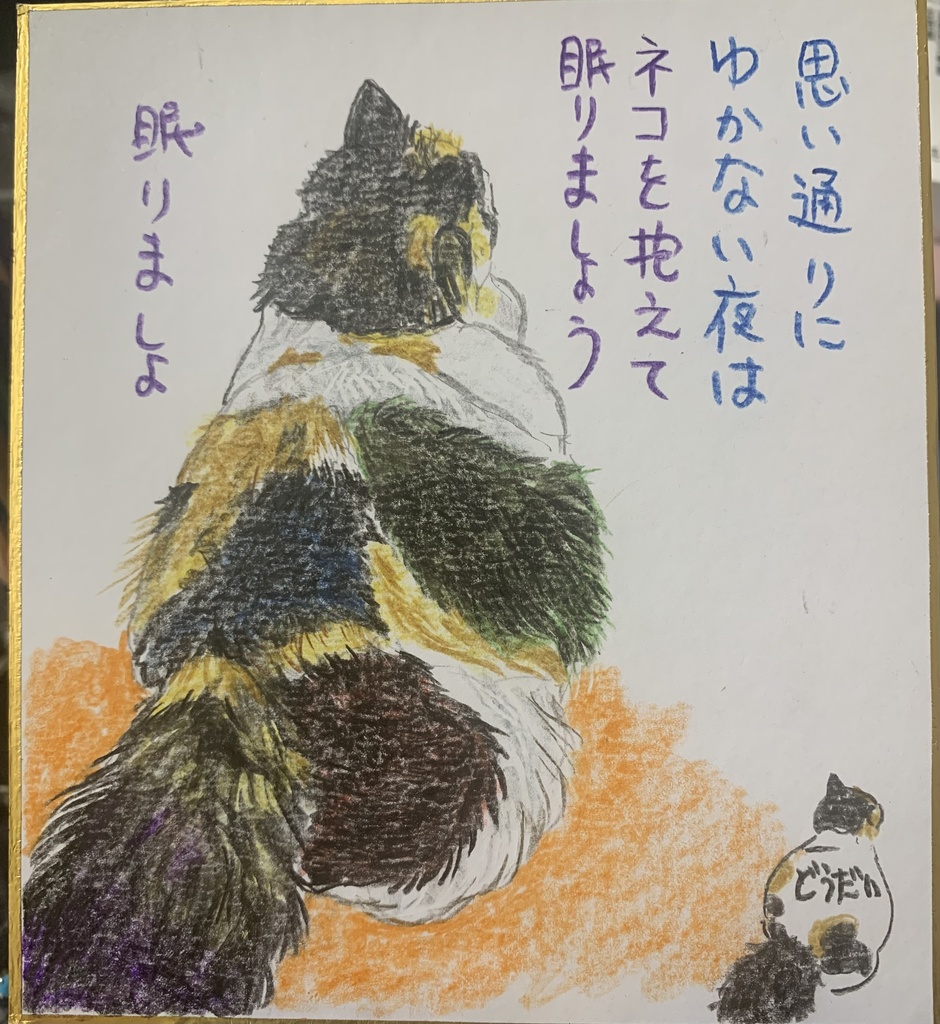 思い通りに
ゆかない夜は
ネコを抱えて
眠りましょう
眠りましょ
どうだい